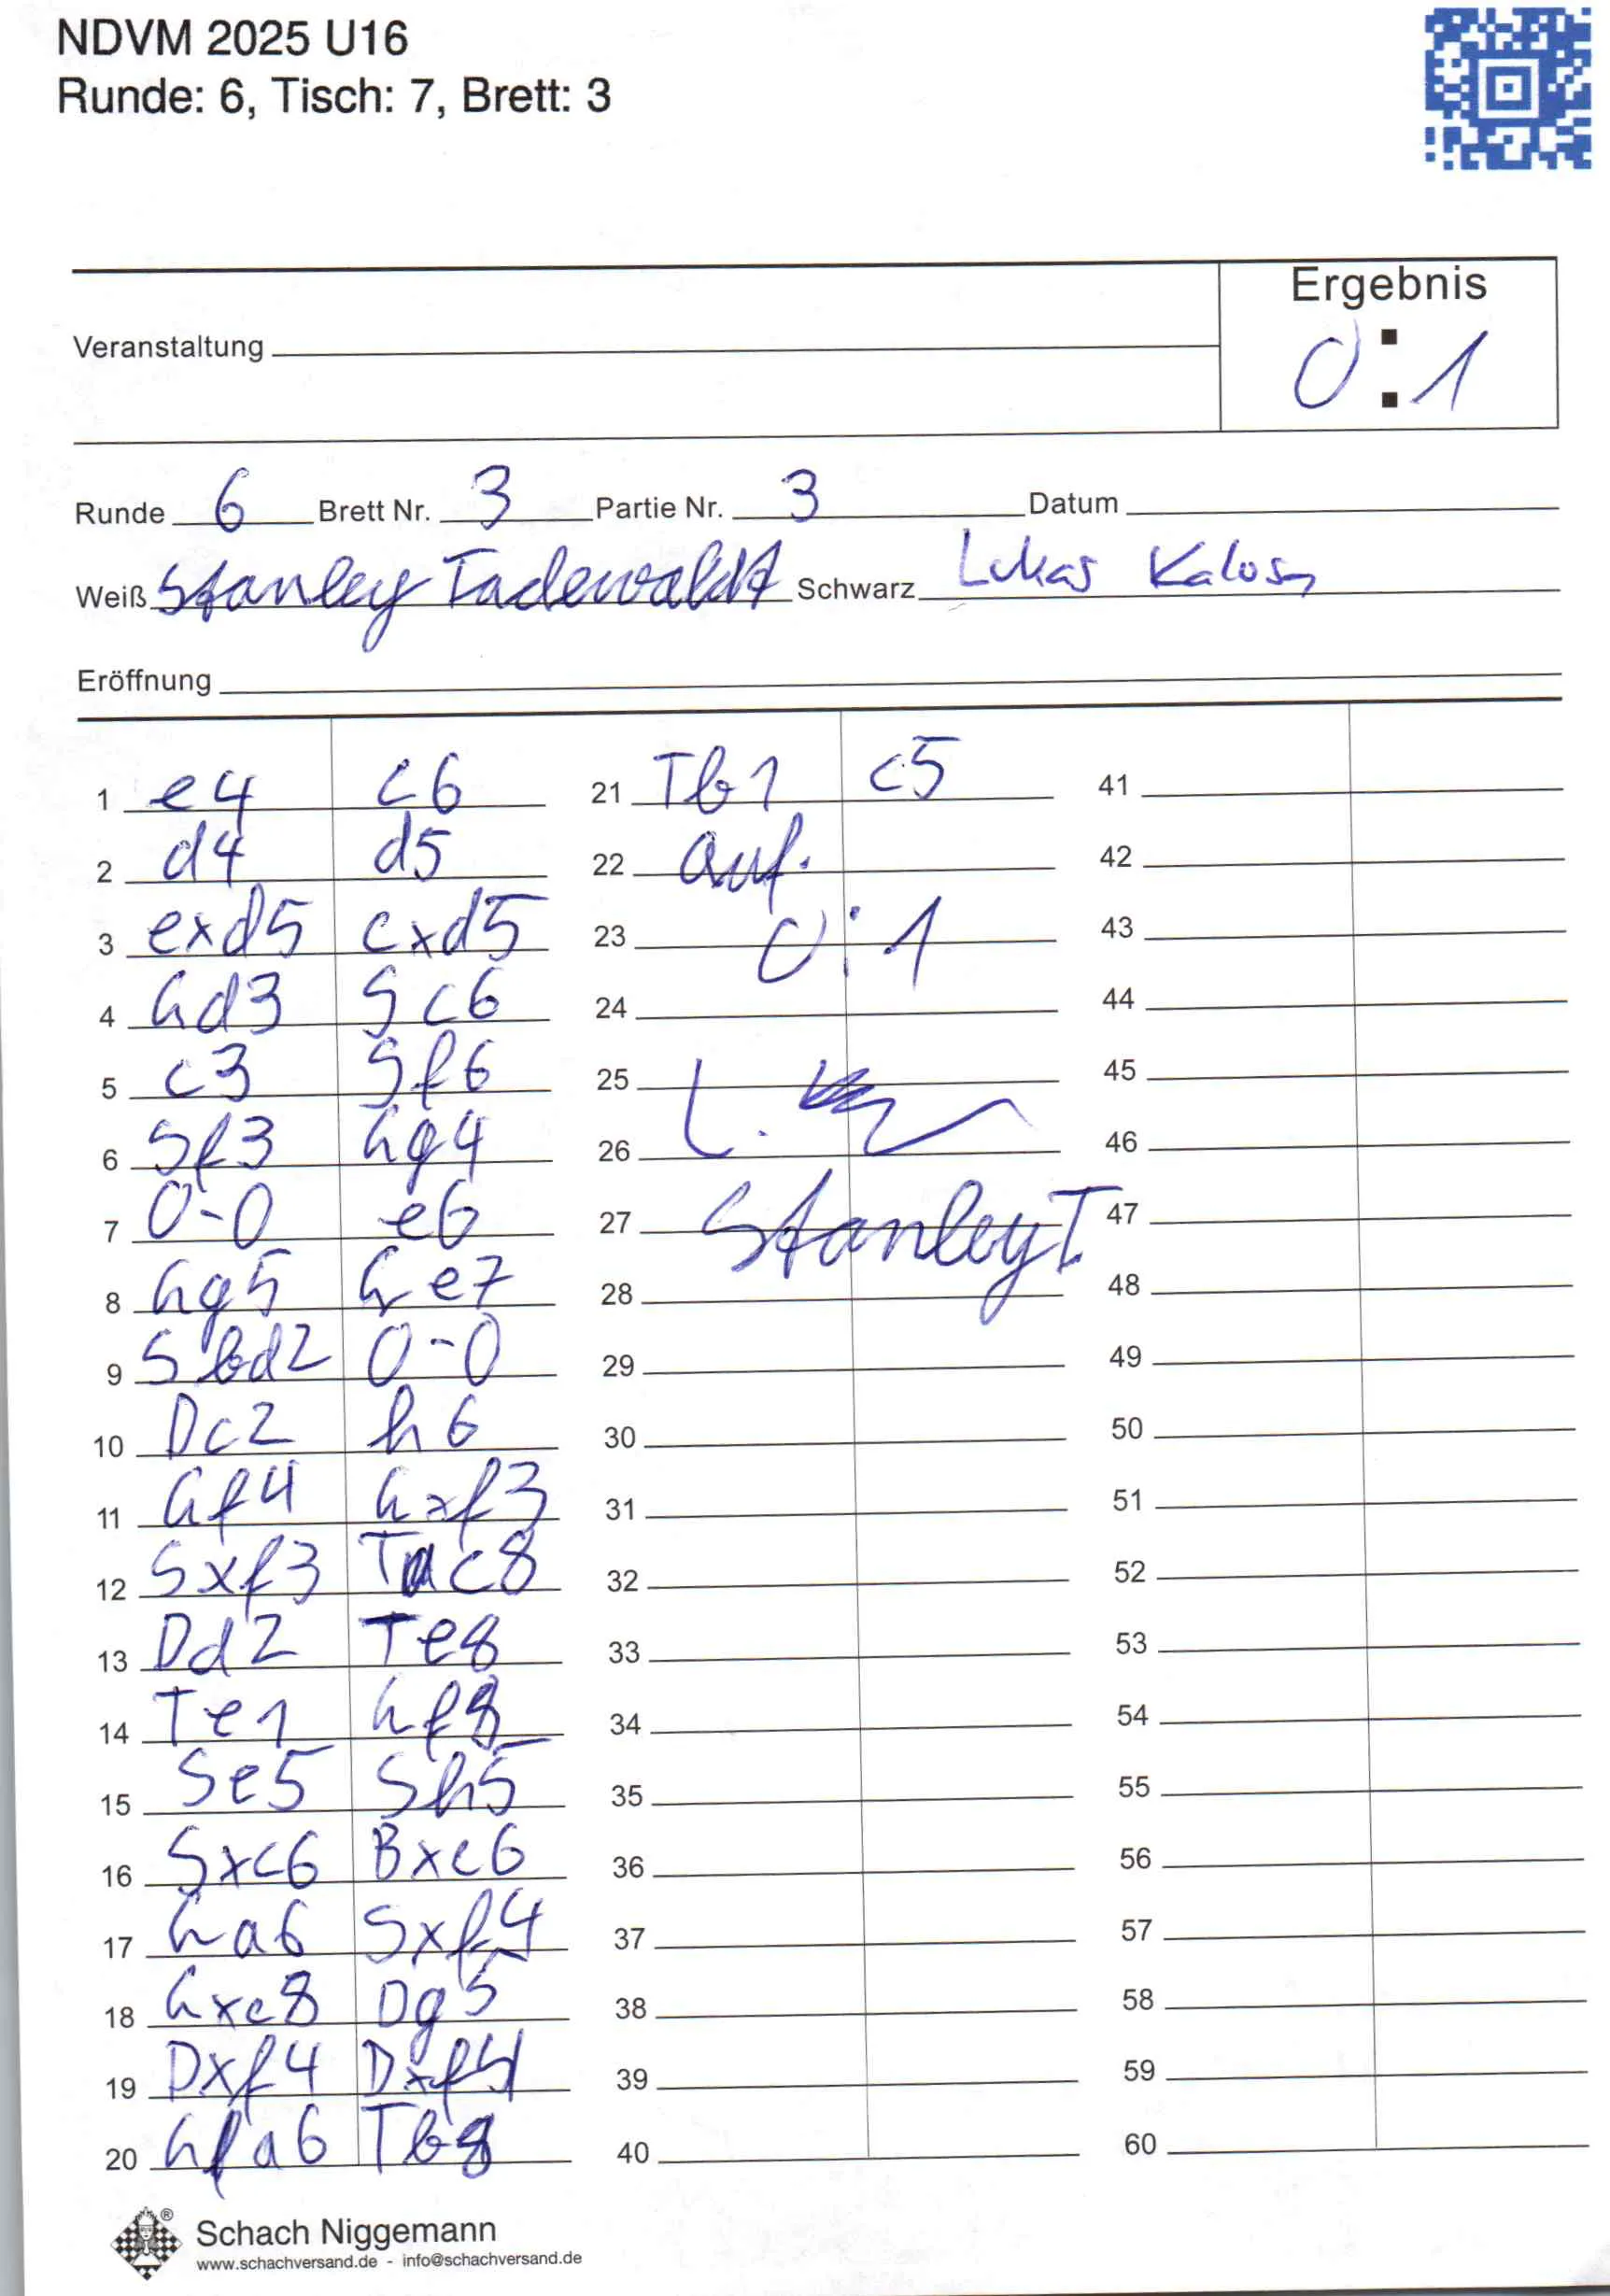 NDVM 2025 U16
Runde: 6, Tisch: 7, Brett: 3
Ergebnis
Veranstaltung
0:1
Runde 6 Brett Nr. 3 Partie Nr. 3 Datum
Weiß Stanley Tadewaldt Schwarz Lukas
Eröffnung
1 e4 c6
2 d4 d5
3 exd5 cxd5
4 Ld3 Sc6
5 c3 Sf6
6 Sf3 Lg4
7 0-0 e6
8 Lg5 Le7
9 Sbd2 0-0
10 Dc2 h6
11 Lf4 Lxf3
12 Sxf3 Tac8
13 Dd2 Te8
14 Te1 Lf8
15 Se5 Sh5
16 Sxc6 Bxc6
17 La6 Sxf4
18 Lxc8 Dg5
19 Dxf4 Dxf4
20 La6 Tb8
21 Tb1 c5
22 auf.
23 0:1
24
25
26 L.
27 Stanley T
28
29
30
31
32
33
34
35
36
37
38
39
40
41
42
43
44
45
46
47
48
49
50
51
52
53
54
55
56
57
58
59
60
®
Schach Niggemann
www.schachversand.de - info@schachversand.de